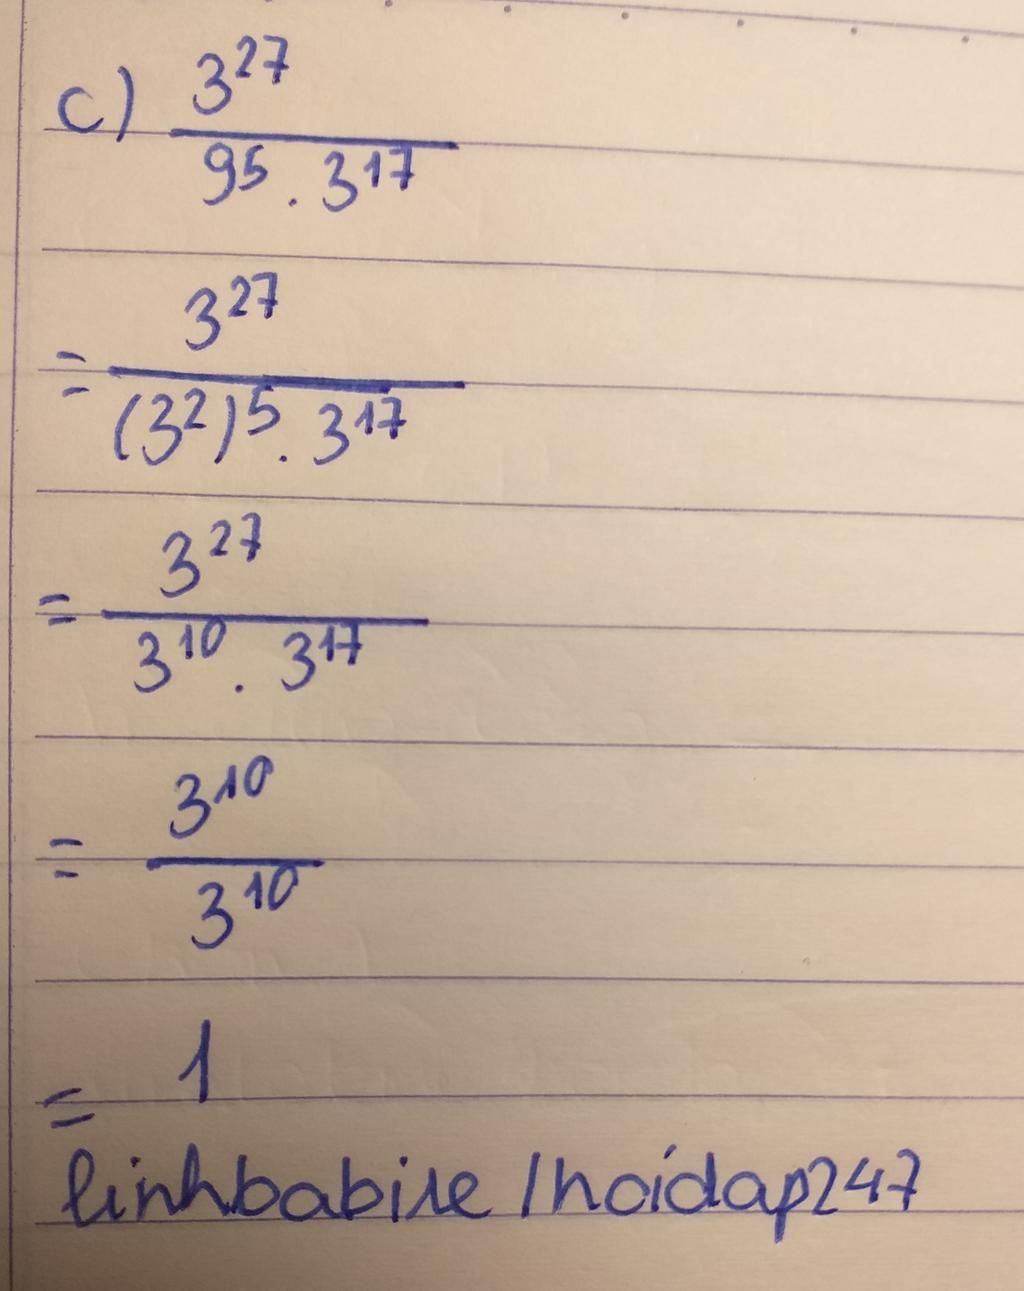 c) 3²⁷
9⁵ . 3¹⁷
= 3²⁷
(3²)⁵ . 3¹⁷
= 3²⁷
3¹⁰ . 3¹⁷
= 3¹⁰
3¹⁰
= 1
linhbabire /hoidap247